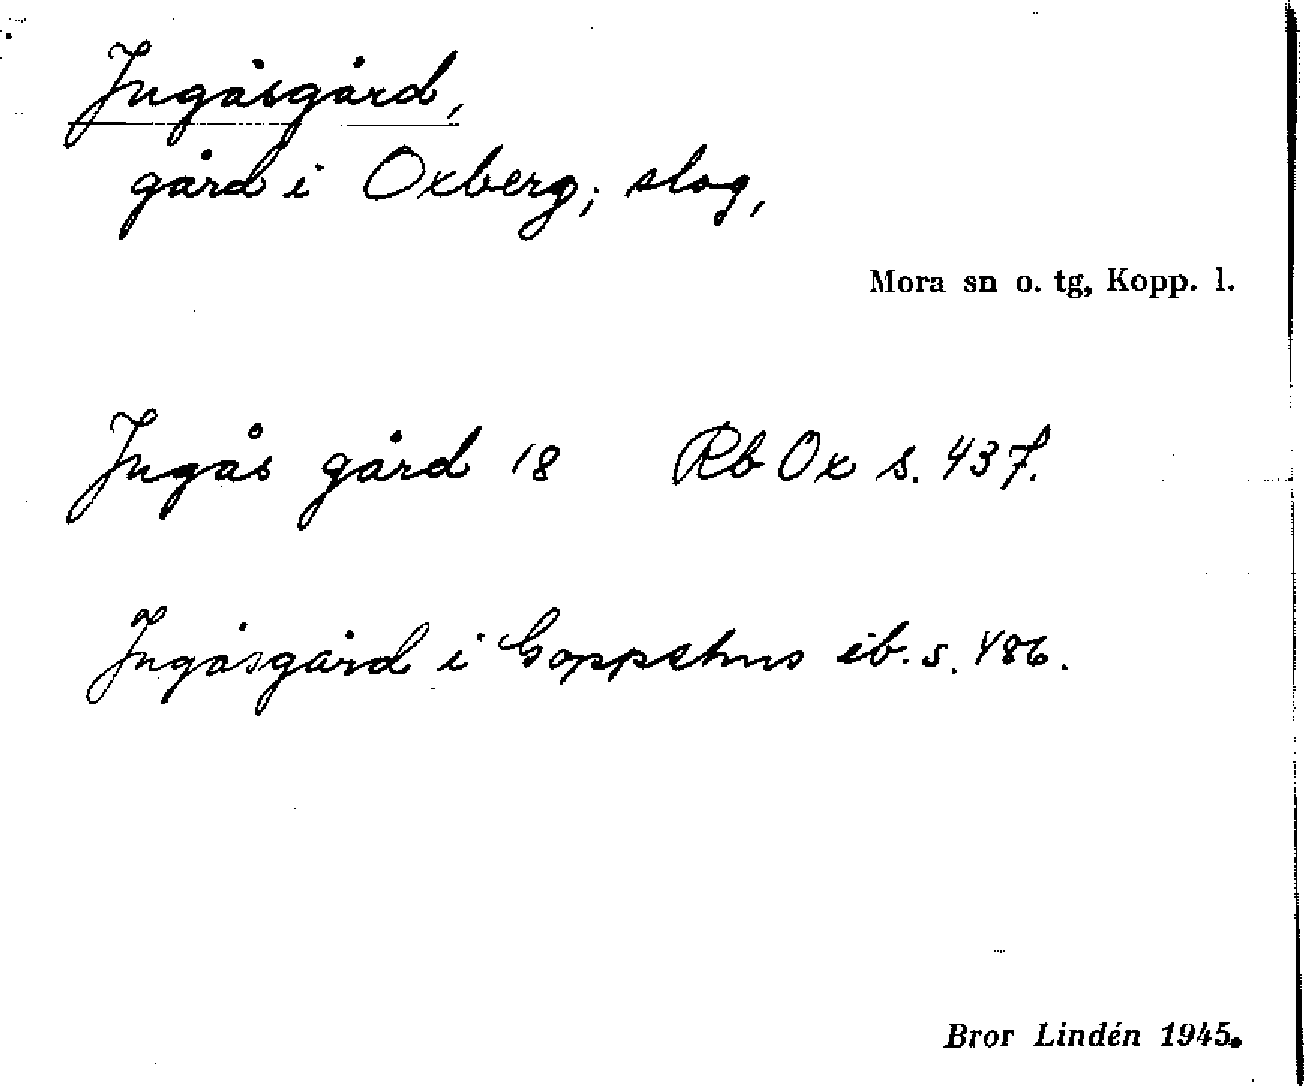 Ingåsgård,
gård i Oxberg; slog,
Mora sn o. tg, Kopp. l.
Ingås gård 18 Rb Ox s. 437.
Ingåsgård i Goppshus ib. s. 486.
Bror Lindén 1945.